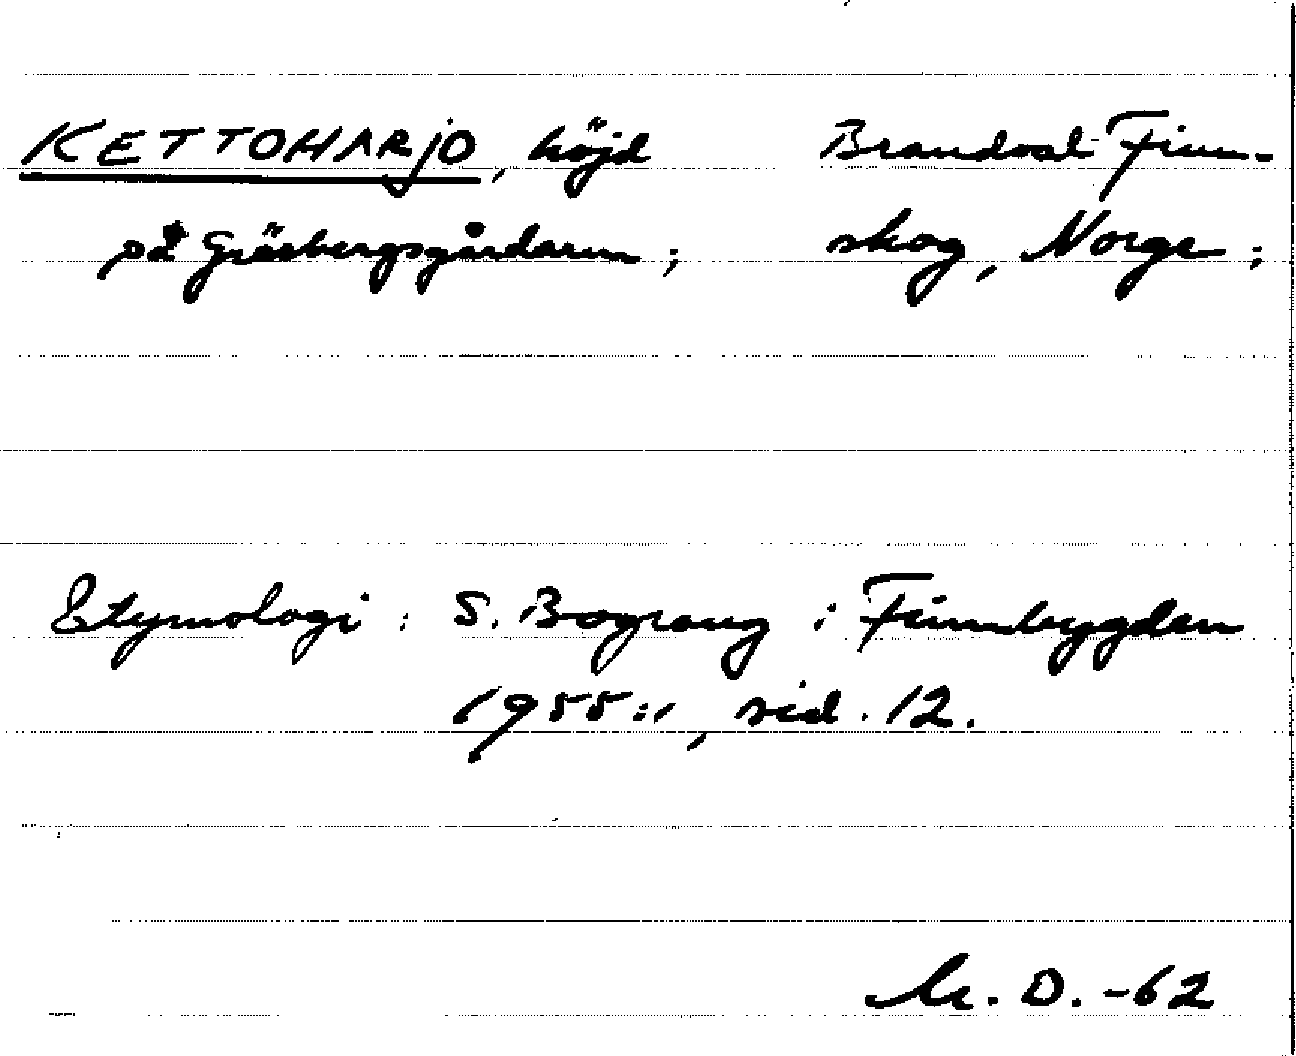 KETTOHARJO, höjd
på Gräsbergsgårdarna;
Brandval Finn-
skog, Norge;
Etymologi: S. Bograng i Finnbygden
1955:1, sid. 12.
M. D. -62